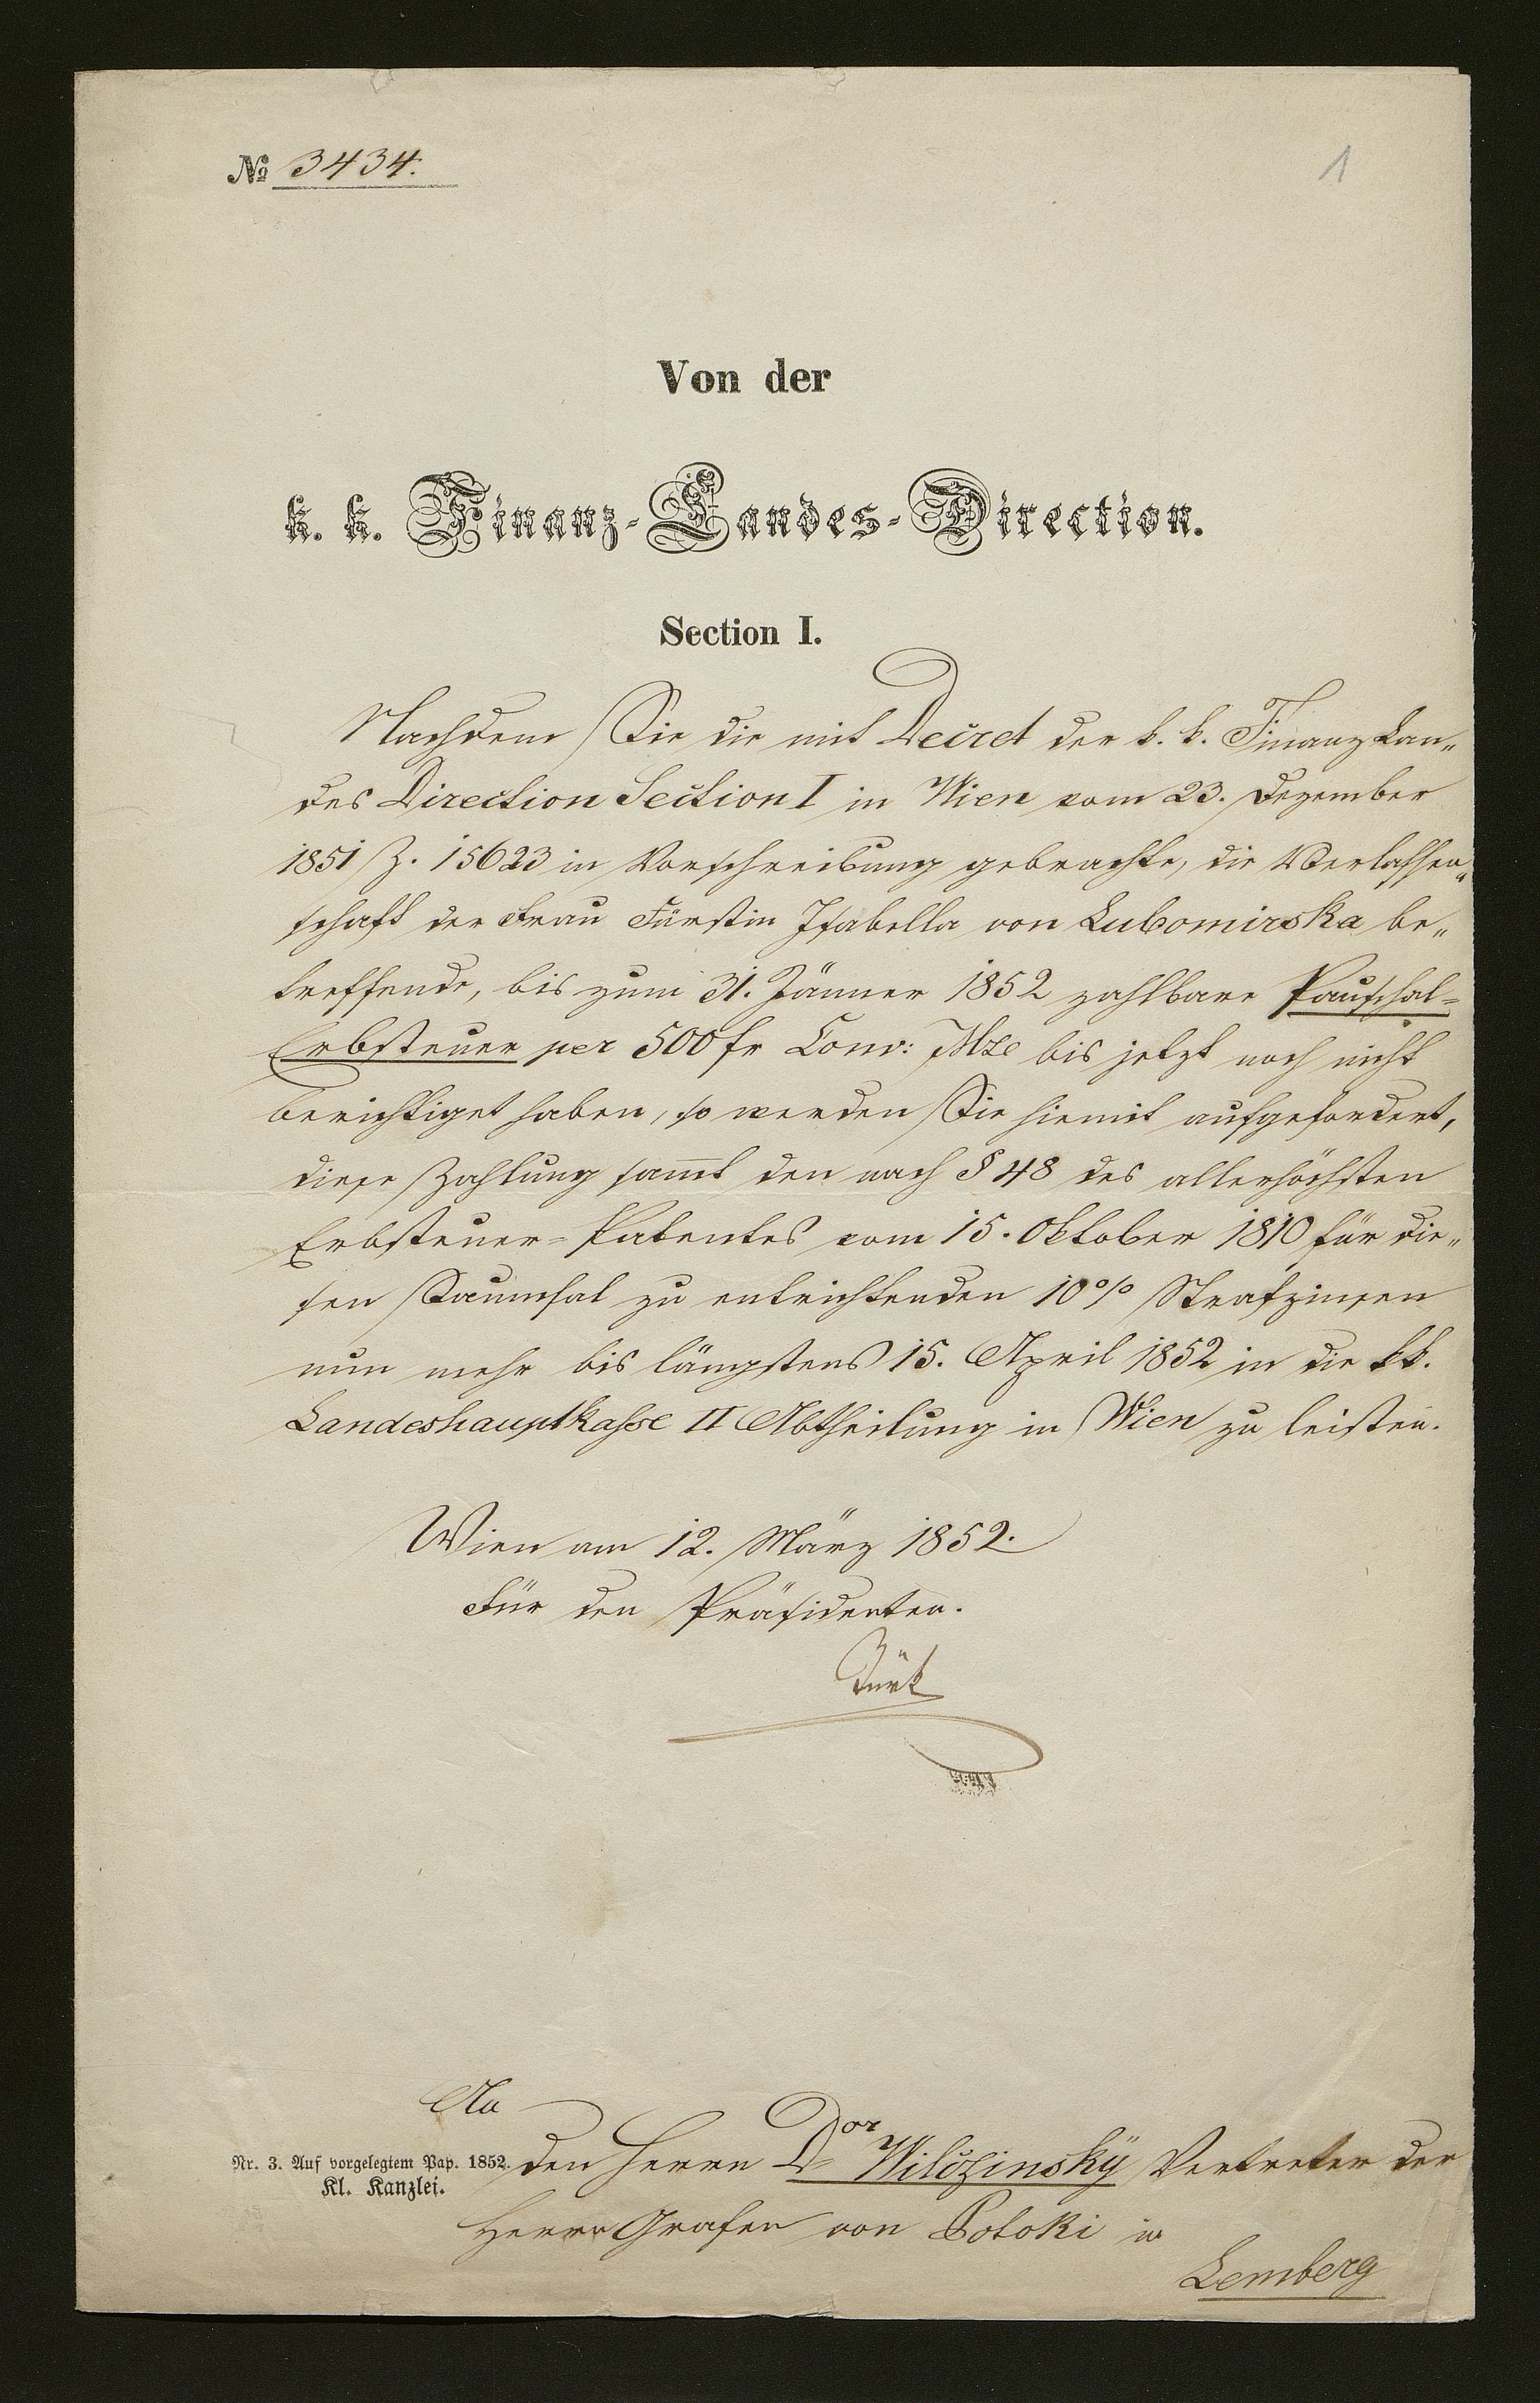 № 3434.
1
Von der
k. k. Finanz-Landes-Direction.
Section I.
Nachdem Sie die mit Decret der k. k. Finanz Lan„
des Direction Section I in Wien vom 23. Dezember
1851 Z. 15623 in Vorschreibung gebrachte, die Verlassen„
schaft der Frau Fürstin Isabella von Lubomirska be„
treffende, bis zum 31. Jänner 1852 zahlbare Pauschal=
Erbsteuer per 500 fr Conv: Mze bis jetzt noch nicht
berichtiget haben, so werden Sie hiemit aufgefordert,
diese Zahlung sam̅t den nach § 48 des allerhöchsten
Erbsteuer=Patentes vom 15. Oktober 1810 für die„
sen Saumsal zu entrichtenden 10% Strafzinsen
nun mehr bis längstens 15. April 1852 in die kk.
Landeshauptkasse II Abtheilung in Wien zu leisten.
Wien am 12. März 1852.
Für den Präsidenten.
Türk
An
den Herrn Dor Wilczinsky Vertreter der
Nr. 3. Auf vorgelegtem Pap. 1852.
Kl. Kanzlei.
Herrn Grafen von Potoki in
Lemberg